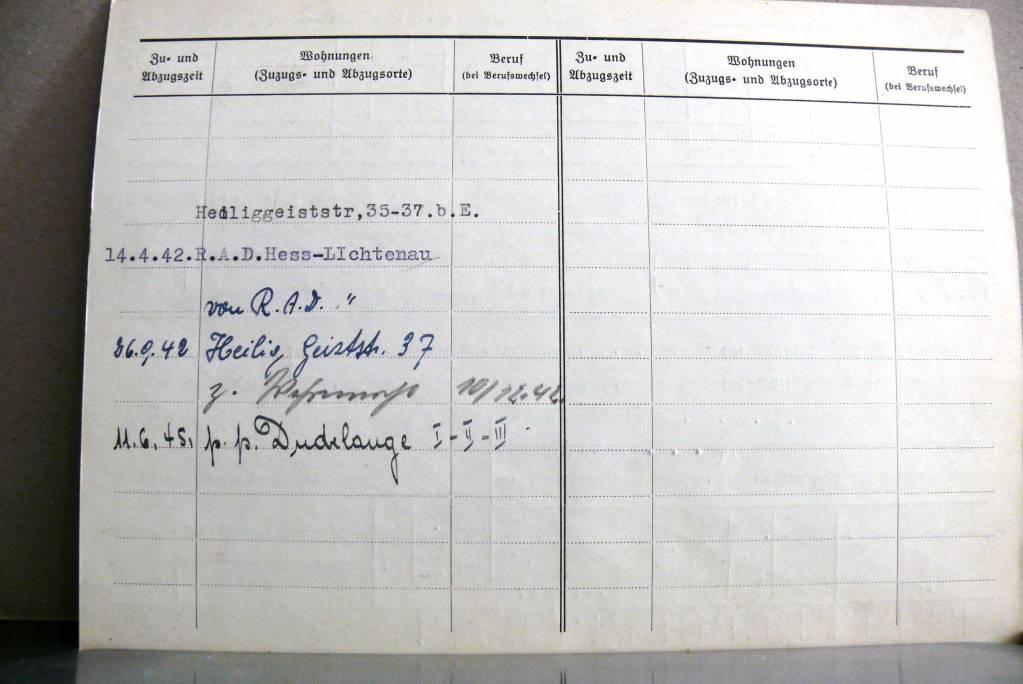 Zu- und Abzugszeit
Wohnungen (Zuzugs- und Abzugsorte)
Beruf (bei Berufswechsel)
Zu- und Abzugszeit
Wohnungen (Zuzugs- und Abzugsorte)
Beruf (bei Berufswechsel)
Heiliggeiststr,35-37.b.E.
14.4.42.R.A.D.Hess-LIchtenau
von R.A.D. "
26.9.42 Heilig Geiststr. 37
z. Wehrmacht 10/12.42.
11.6.45. p. p. Dudelange I-II-III